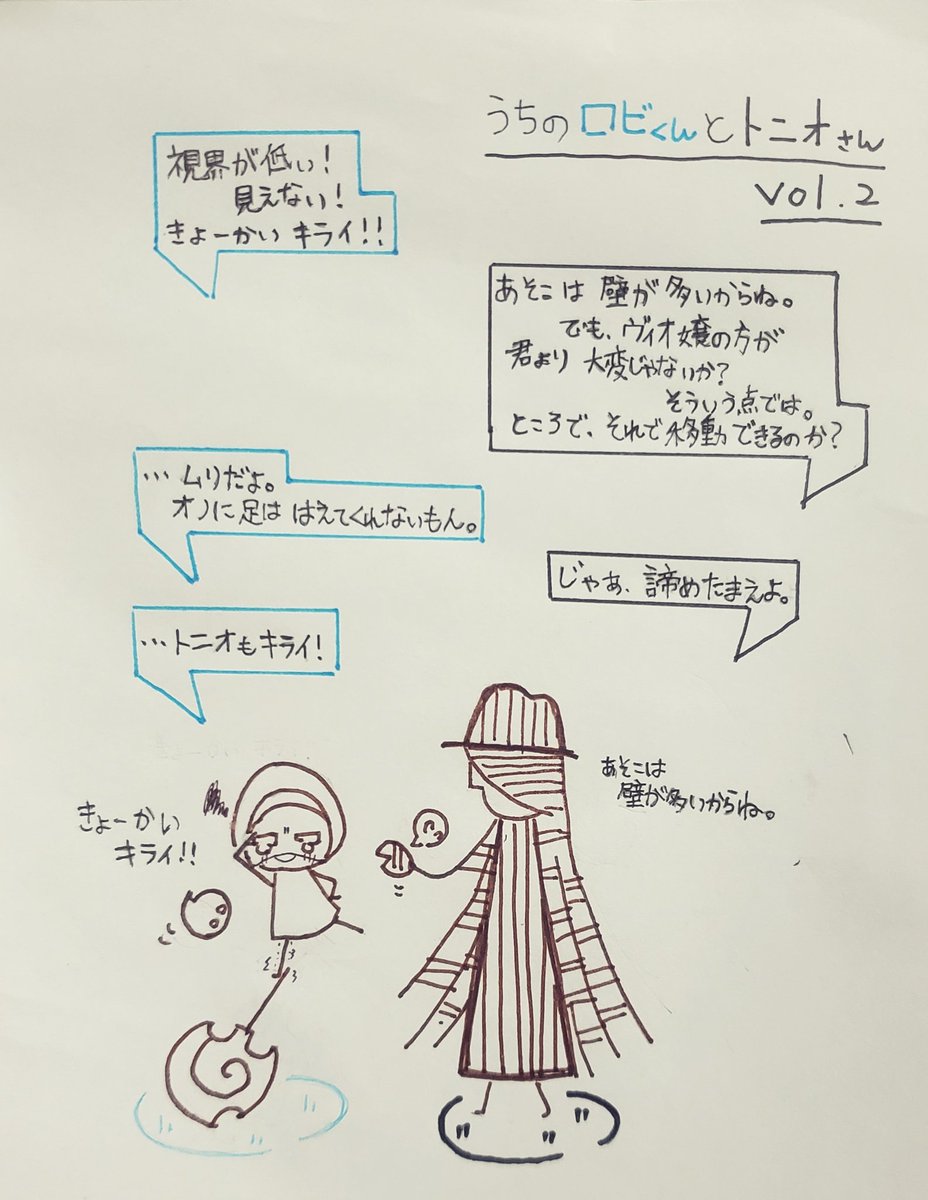 うちのロビくんとトニオさん
vol.2
視界が低い!
見えない!
きょーかい キライ!!
あそこは 壁が多いからね。
でも、ヴィオ嬢の方が
君より 大変じゃないか?
そういう点では。
ところで、それで移動できるのか?
…ムリだよ。
オノに足は はえてくれないもん。
じゃあ、諦めたまえよ。
…トニオもキライ!
きょーかい
キライ!!
あそこは
壁が多いからね。